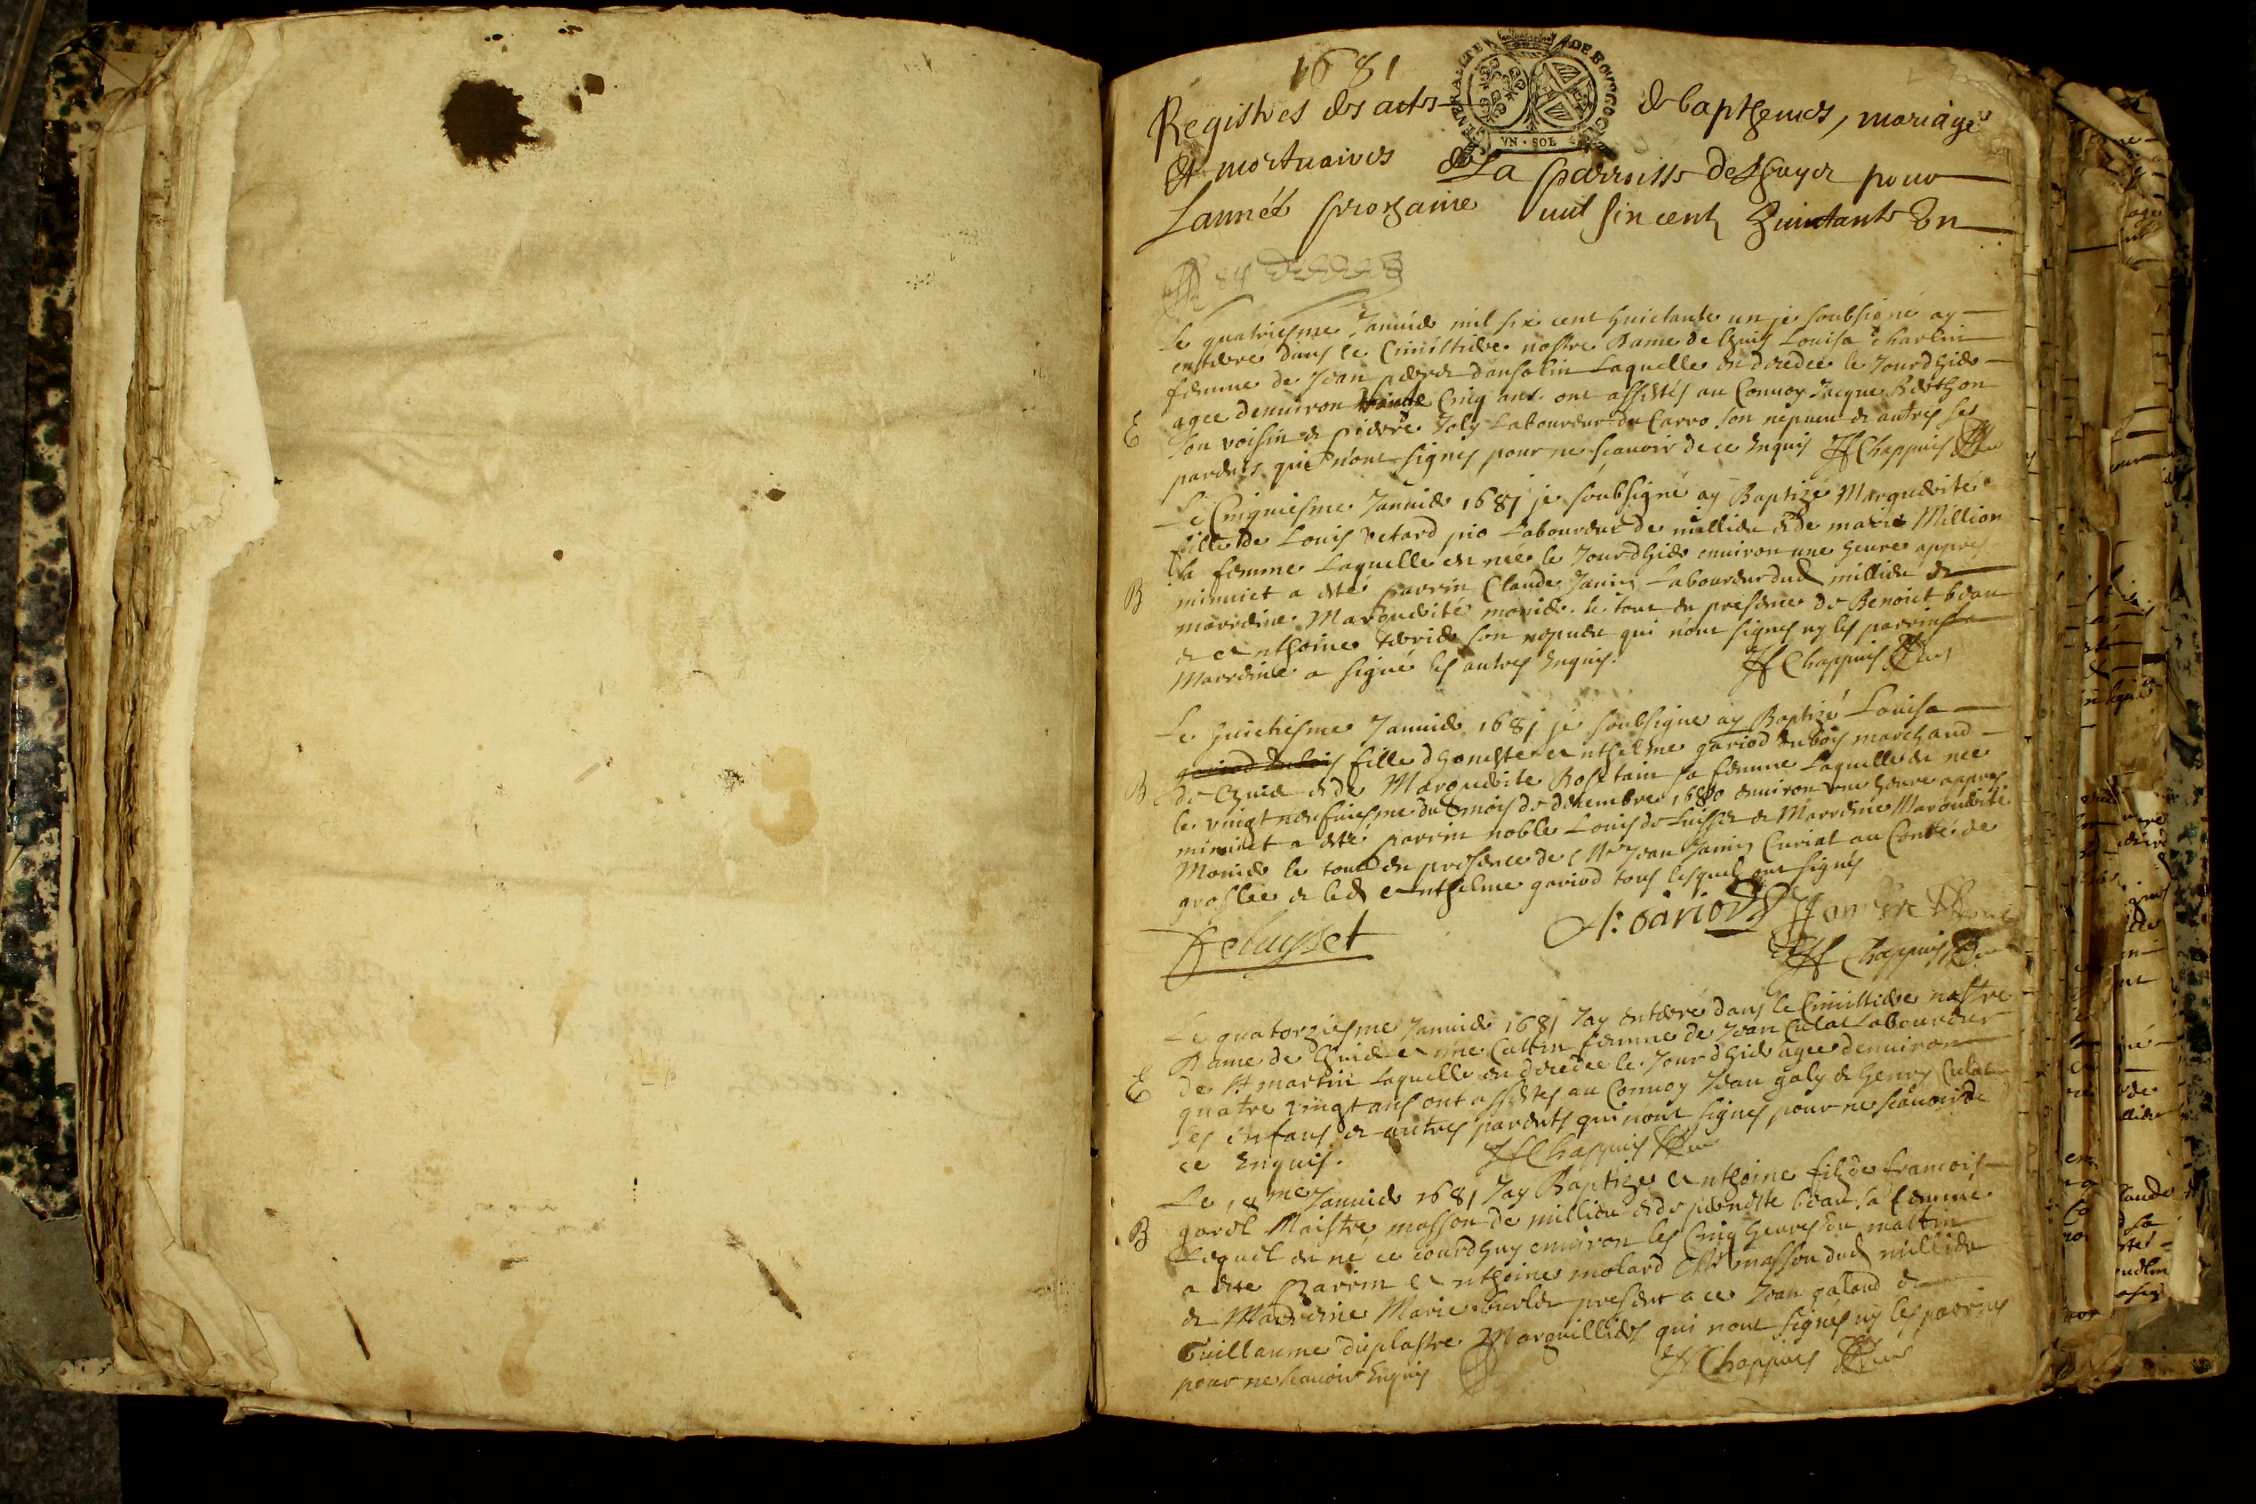 1681
GENERALITE DE BOVRGOGNE
VN · SOL
Registres des actes de baptesmes, mariages
Et mortuaires de La parroisse de Lhuys pour
Lannéé prochaine mil six cent huictante Un
Le quatriesme Januier mil six cent huictante un je soubsigné ay
enterré dans le Cimistiere nostre Dame de Lhuis Louisa Charlin
femme de Jean pierre dansolin Laquelle est decedée le Jourdhier
E
agee denuiron Cinq ans ont assistés au Conuoy Jacque Berthon
son voisin et pierre Joly Laboureur du Carro son nepueu et autres ses
parents qui n'ont signés pour ne scauoir de ce Enquis Chappuis
Le Cinquiesme Januier 1681 je soubsigné ay Baptizé Marguerite
fille de Louis Laboureur de millieu et de marie Million
sa femme Laquelle est née le Jourdhier enuiron une heure appres
B
minuict a esté parrin Claude Janin Laboureur dud millieu et
marreine Marguerite monier le tout en presence de Benoict beau
et Anthoine son nepueu qui n'ont signés ny les parrins la
Marreine a signé les autres Enquis. Chappuis
Le huictiesme Januier 1681 je soubsigné ay Baptizé Louisa
fille dhoneste Anthelme gariod dubois marchand
B
de Lhuis et de Marguerite Rostain sa femme Laquelle est née
le vingt neufuiesme du mois de decembre 1680 enuiron une heure appres
minuict a esté parrin noble Louis de Luisset et Marreine Marguerite
Monier le tout en presence de Mre Jean Janin Curial au Conté de
groslée et led Anthelme gariod tous lesquels ont signés
Deluysset A: Gariod
Chappuis
Le quatorziesme Januier 1681 Jay enterré dans le Cimistiere nostre
Dame de Lhuis Anne Cattin femme de Jean Culat Laboureur
E
de St martin Laquelle est decedée le Jourdhier agee denuiron
quatre vingt ans ont assistés au Conuoy Jean galy et henry Culat
ses enfans et autres parents qui n'ont signés pour ne scauoir de
ce Enquis. Chappuis
Le 18me Januier 1681 Jay Baptizé Anthoine filz de francois
B
Maistre masson de millieu et de pernette beau sa femme
Lequel est né ce jourdhuy enuiron les Cinq heures du mattin
a esté parrin Anthoine molard Mre masson dud millieu
et Marreine Marie present a ce Jean galand et
Guillaume duplastre Marguilliers qui n'ont signés ny les parrins
pour ne scauoir Enquis Chappuis